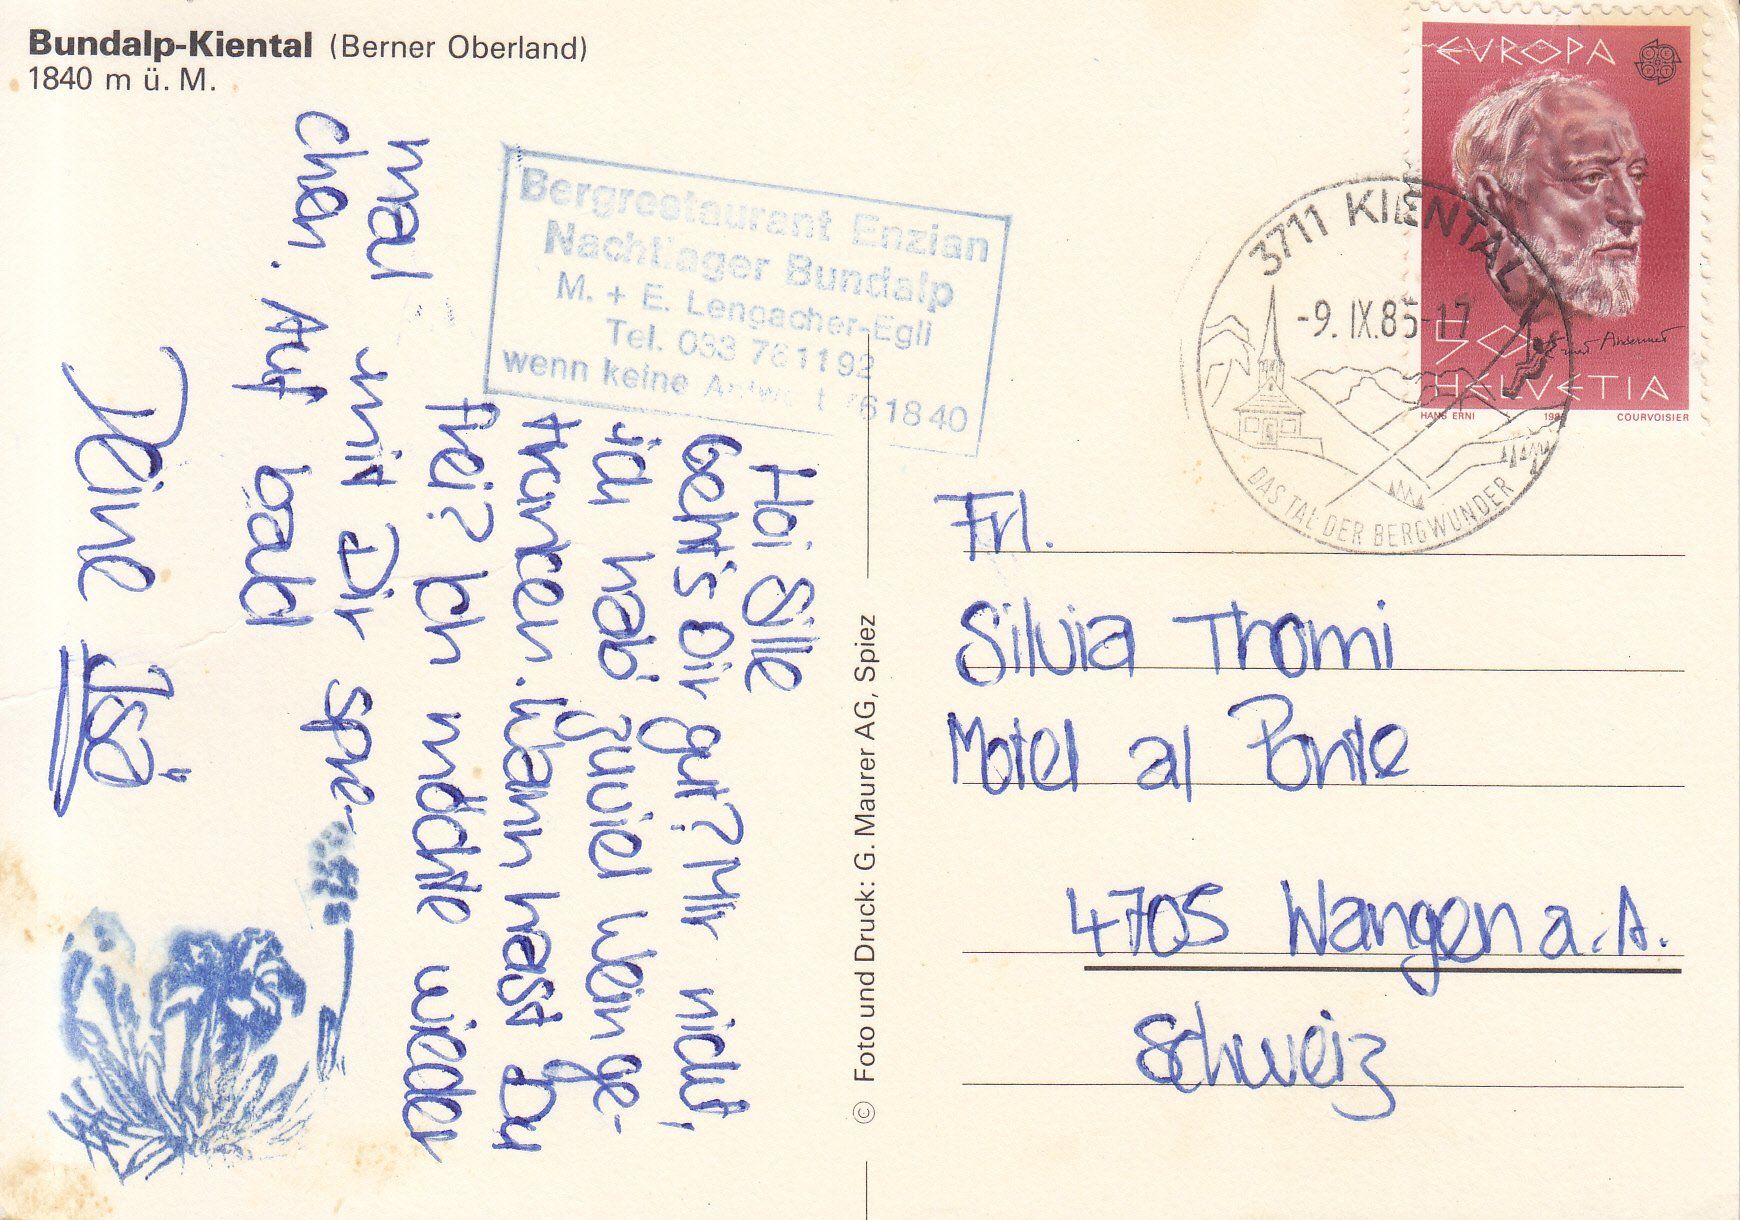 Bundalp-Kiental (Berner Oberland)
1840 m ü. M.
Bergrestaurant Enzian
Nachtlager Bundalp
M. + E. Lengacher-Egli
Tel. 033 76 11 92
wenn keine Antwort 76 18 40
Hoi Sille
Geht's Dir gut? Mir nicht,
ich hab' zuviel Wein ge-
trunken. Wann hast Du
frei? Ich möchte wieder
mal mit Dir spre-
chen. Auf bald
Deine Isö
© Foto und Druck: G. Maurer AG, Spiez
EUROPA
CEPT
50
Ernest Ansermet
HELVETIA
HANS ERNI 1985 COURVOISIER
3711 KIENTAL
-9. IX. 85-17
DAS TAL DER BERGWUNDER
Frl.
Silvia Thomi
Motel al Ponte
4705 Wangen a. A.
Schweiz